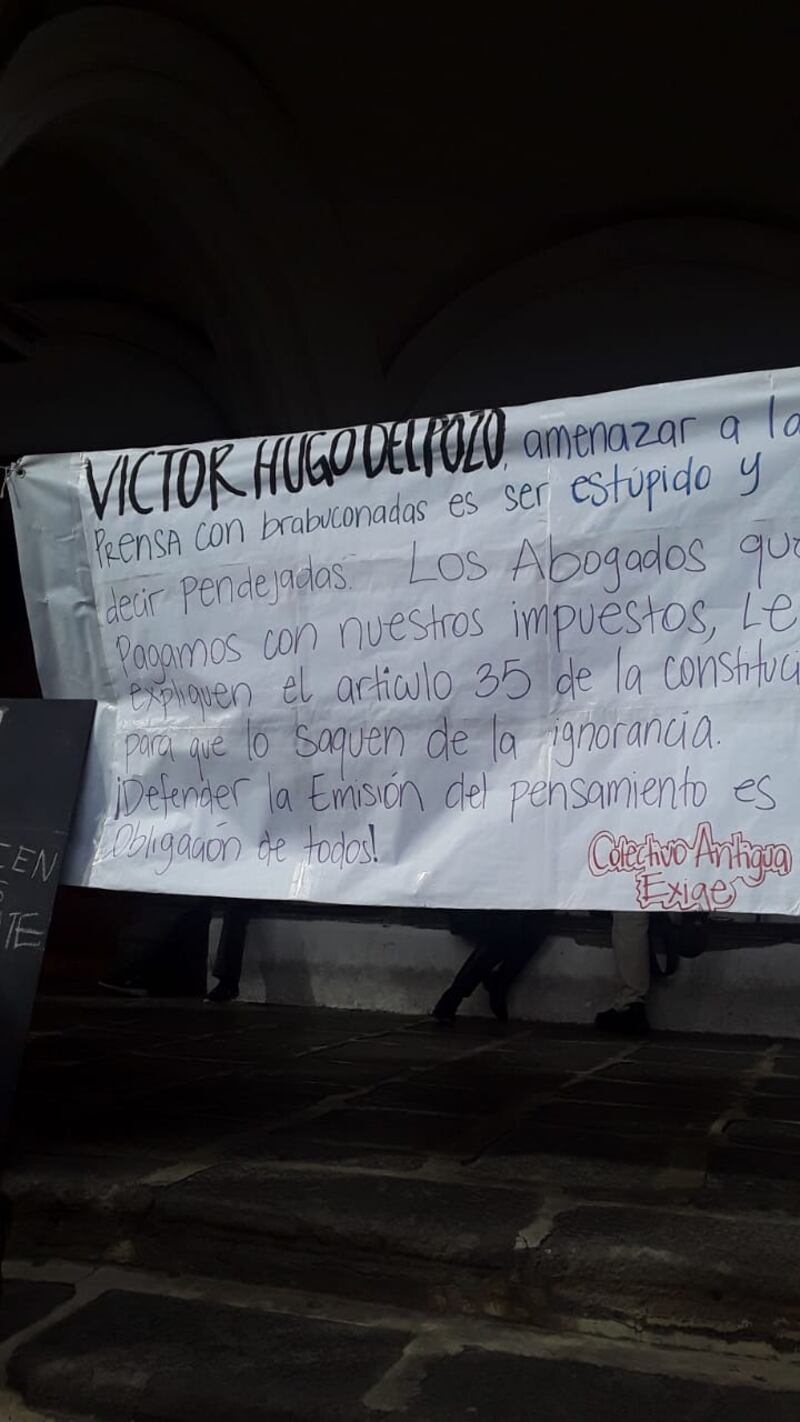 VICTOR HUGO DEL POZO, amenazar a la
PRENSA con brabuconadas es ser estúpido y
decir Pendejadas. Los Abogados que
Pagamos con nuestros impuestos, Le
expliquen el articulo 35 de la constituci
para que lo saquen de la ignorancia.
¡Defender la Emisión del pensamiento es
Obligación de todos!
Colectivo Antigua
Exige
EEN
S
TE